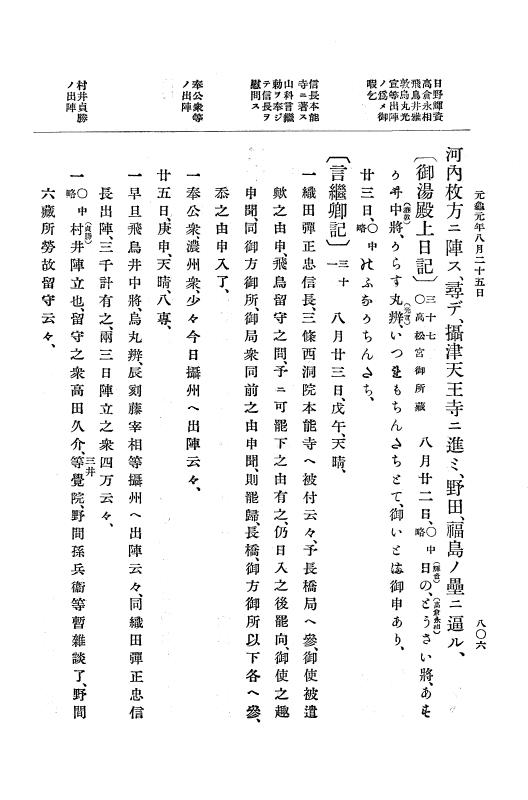 元龜元年八月二十五日
八〇六
日野輝資
高倉永相
飛鳥井雅
敦烏丸光
宣等出陣
ノ爲メ御
暇乞
信長本能
寺ニ著ス
山科言繼
勅ヲ奉ジ
テ信長ヲ
慰問ス
奉公衆等
ノ出陣
村井貞勝
ノ出陣
河內枚方ニ陣ス、尋デ、攝津天王寺ニ進ミ、野田、福島ノ壘ニ逼ル、
〔御湯殿上日記〕三十七〇高松宮御所藏 八月廿二日、〇中略日の、(輝資)とうさい將、(高倉永相)あす
かゐ中將、(雅敦)からす丸辨、(光宣)いつれもちんたちとて、御いとは御申あり、
廿三日、〇中略けふかうちんたち、
〔言繼卿記〕三十一 八月廿三日、戊午、天晴、
一織田彈正忠信長、三條西洞院本能寺ヘ被付云々、予長橋局ヘ參、御使被遣
歟之由申、飛鳥留守之間、予ニ可罷下之由有之、仍日入之後罷向、御使之趣
申聞、同御方御所、御局衆同前之由申聞、則罷歸、長橋、御方御所以下各ヘ參、
忝之由申入了、
一奉公衆濃州衆、少々今日攝州ヘ出陣云々、
廿五日、庚申、天晴、八專、
一早旦飛鳥井中將、烏丸辨、辰刻藤宰相等攝州ヘ出陣云々、同織田彈正忠信
長出陣、三千計有之、兩三日陣立之衆四万云々、
一〇中略村井(貞勝)陣立也、留守之衆高田久介、三井等覺院、野間孫兵衞等暫雜談了、野間
六藏所勞故留守云々、